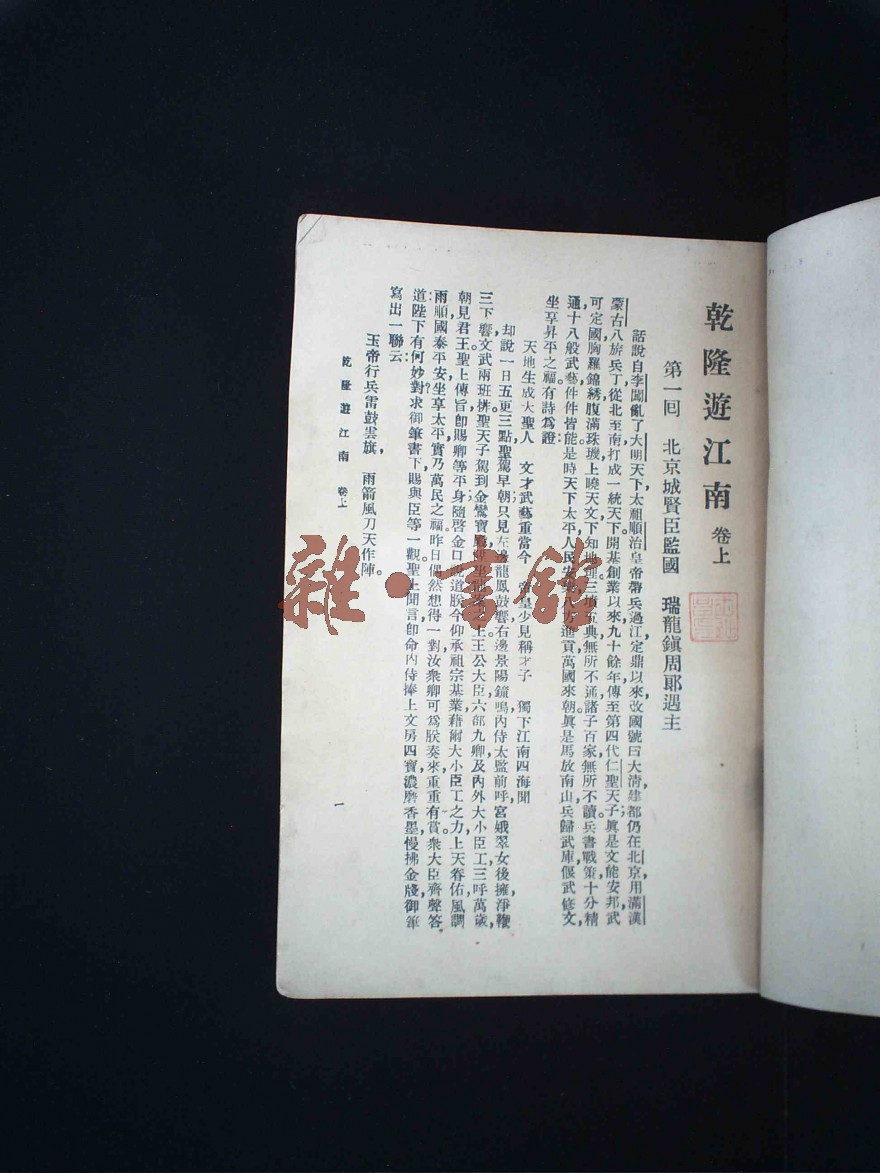 乾隆遊江南 卷上
第一囘 北京城賢臣監國 瑞龍鎮周郎遇主
話說自李闖亂了大明天下太祖順治皇帝帶兵過江定鼎以來，改國號曰大清，建都仍在北京，用滿漢
蒙古八旂兵丁，從北至南，打成一統天下。開基創業以來，九十餘年，傳至第四代仁聖天子；眞是文能安邦，武
可定國，胸羅錦綉，腹滿珠璣，上曉天文，下知地理，三墳五典，無所不通，諸子百家，無所不讀。兵書戰策，十分精
通，十八般武藝，件件皆能。是時天下太平，人民安樂，八方進貢，萬國來朝，眞是馬放南山，兵歸武庫，偃武修文，
坐享昇平之福。有詩爲證：
天地生成大聖人 文才武藝重當今 帝皇少見稱才子 獨下江南四海聞
却說一日五更三點，聖駕早朝，只見左邊龍鳳鼓響，右邊景陽鐘鳴，內侍太監前呼，宮娥翠女後擁，淨鞭
三下響，文武兩班排。聖天子駕到金鑾寶殿，王公大臣，六部九卿，及內外大小臣工，三呼萬歲，
朝見君王。聖上傳旨，卽賜卿等平身，隨啓金口說道：朕今仰承祖宗基業，藉爾大小臣工之力，上天眷佑，風調
雨順，國泰平安，坐享太平，實乃萬民之福。昨日偶然想得一對，汝衆卿可爲朕奏來，重重有賞。衆大臣齊聲答
道：陛下有何妙對？求御筆書下，賜與臣等一觀。聖上聞言，卽命內侍捧上文房四寶，濃磨香墨，慢拂金牋，御筆
寫出一聯云：
玉帝行兵雷鼓雲旗，雨箭風刀天作陣。
乾隆遊江南 卷上
一
雜·書館